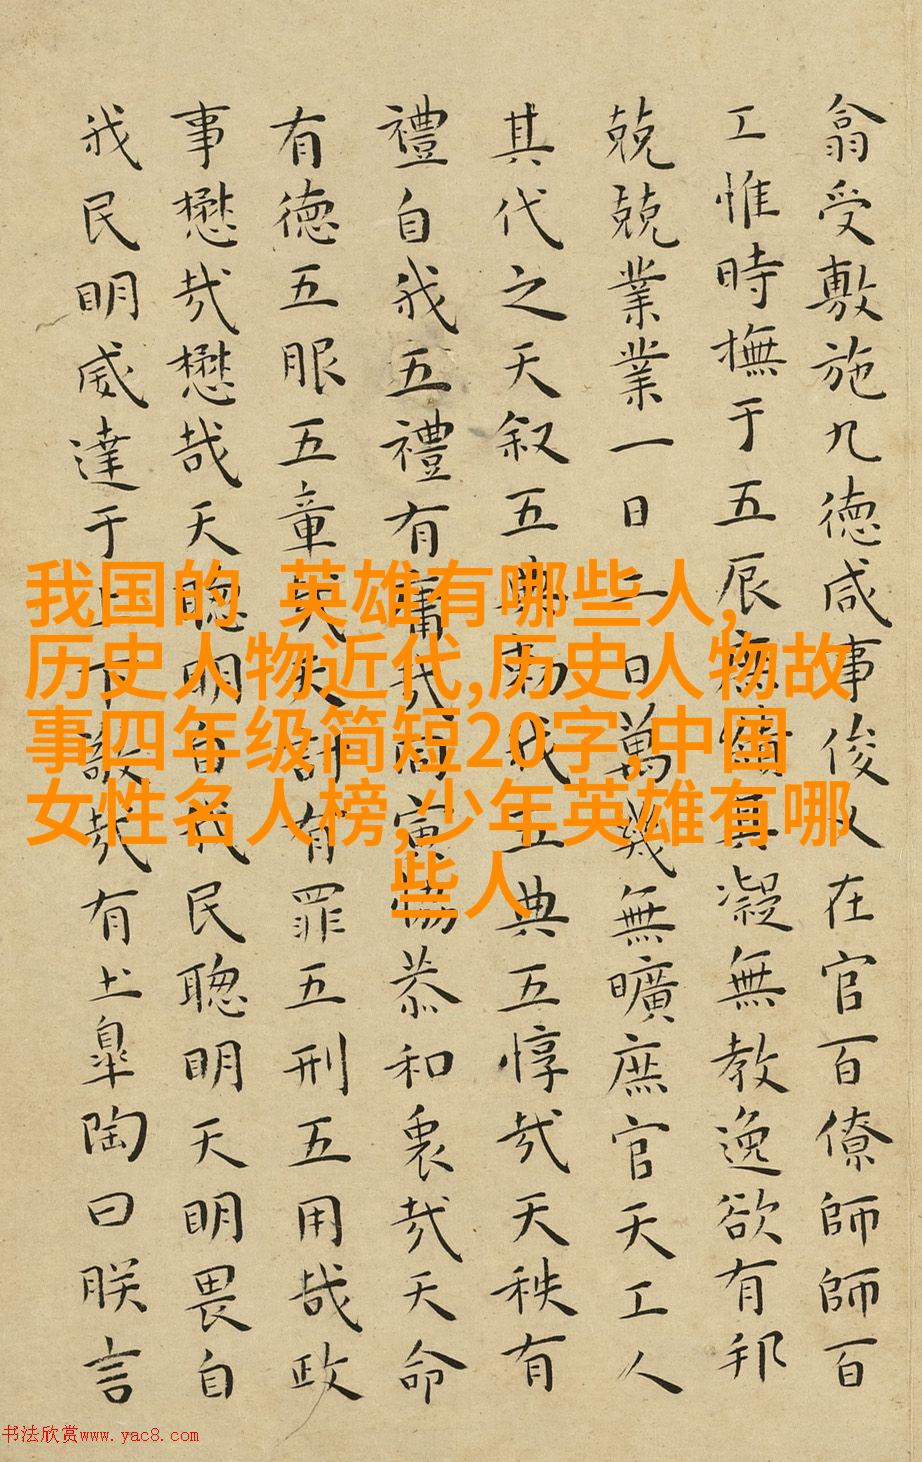 翕受敷施九德咸事俊乂在官百僚師師百
工惟時撫于五辰庶績其凝無教逸欲有邦
兢兢業業一日二日萬幾無曠庶官天工人
其代之天叙五典勑我五典五惇哉天秩有
禮自我五禮有庸哉同寅協恭和衷哉天命
有德五服五章哉天討有罪五刑五用哉政
事懋哉懋哉天聰明自我民聰明天明畏自
我民明威達于上下敬哉有土皋陶曰朕言
我国的 英雄有哪些人,
历史人物近代,历史人物故
事四年级简短20字,中国
女性名人榜,少年英雄有哪
些人
书法欣赏www.yac8.com